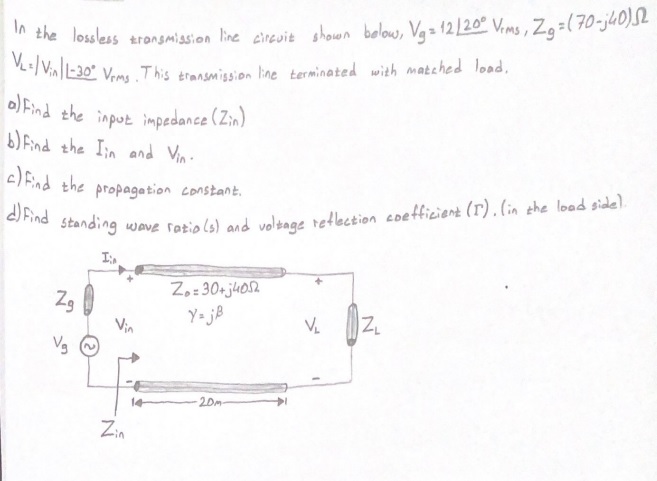 In the lossless transmission line circuit shown below, Vg = 12∠20° Vrms, Zg = (70-j40)Ω
VL = |Vin|∠-30° Vrms. This transmission line terminated with matched load.
a) Find the input impedance (Zin)
b) Find the Iin and Vin.
c) Find the propagation constant.
d) Find standing wave ratio (s) and voltage reflection coefficient (Γ). (in the load side).
Iin
+ +
Zo = 30+j40Ω
Zg
γ = jβ
Vin VL ZL
Vg
- -
20m
Zin